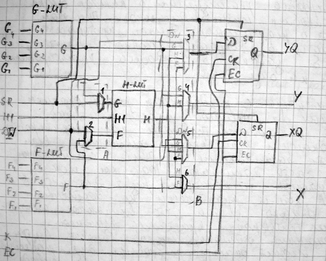 G-LUT
G₄ G4
G₃ G3
G₂ G2
G₁ G1
G
SR
H1
F-LUT
F4
F3
F2
F1
F
K
EC
H-LUT
G
H1
F
H
1
2
A
3
4
5
6
B
D
SR
Q
CK
EC
YQ
Y
D
SR
Q
CK
EC
XQ
X